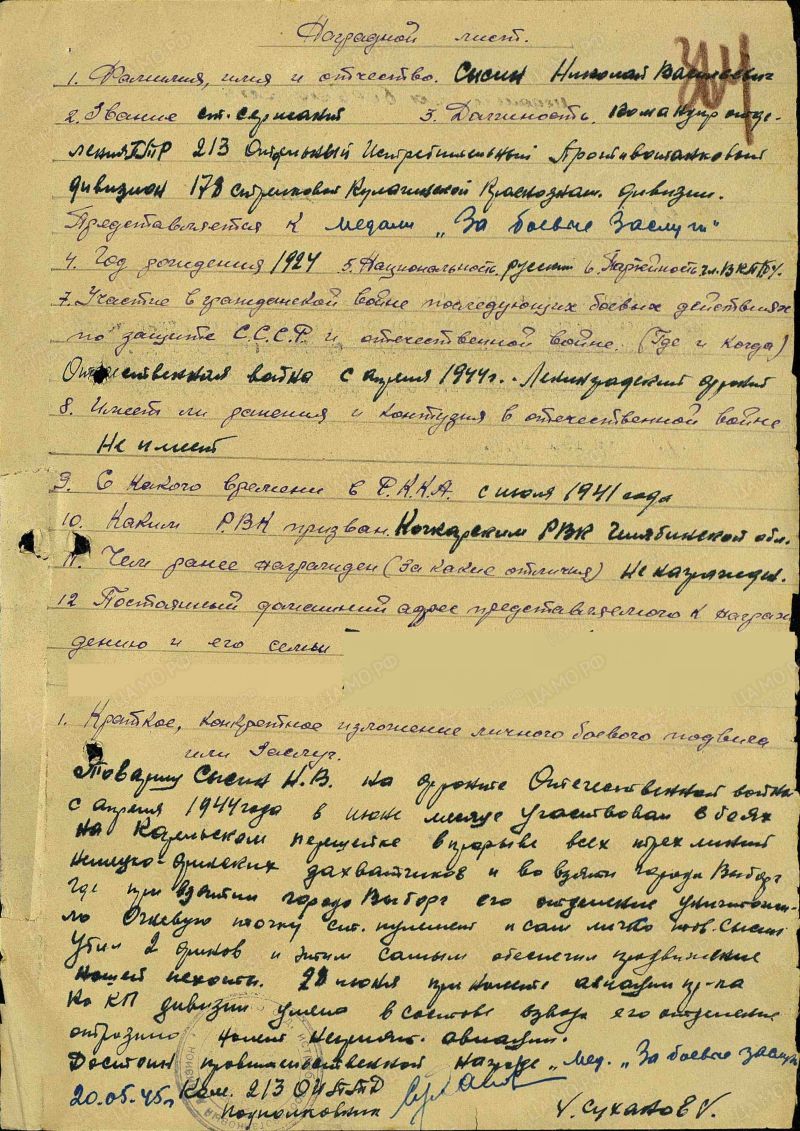 Наградной лист.
304
1. Фамилия, имя и отчество. Сысин Николай Васильевич
2. Звание ст. сержант 3. Должность. Командир отде-
ления ПТР 213 Отдельный Истребительный Противотанковый
дивизион 178 стрелковой Кулагинской Краснознам. дивизии.
Представляется к медали „За боевые Заслуги"
4. Год рождения 1924 5. Национальность русский 6. Партийность чл. ВКП(б)
7. Участие в гражданской войне последующих боевых действиях
по защите С.С.С.Р. и отечественной войне. (Где и когда)
Отечественная война с апреля 1944г. Ленинградский фронт
8. Имеет ли ранения и контузия в отечественной войне
Не имеет
9. С какого времени в Р.К.К.А. с июля 1941 года
10. Каким РВК призван. Кочкарским РВК Челябинской обл.
11. Чем ранее награжден (За какие отличия) Не награжден.
12 Постоянный домашний адрес представляемого к награж
дению и его семьи
1. Краткое, конкретное изложение личного боевого подвига
или Заслуг.
Товарищ Сысин Н.В. на фронте Отечественной войны
с апреля 1944 года в июне месяце участвовал в боях
на Карельском перешейке в прорыве всех трех линий
немецко-финских захватчиков и во взятии города Выборг
где при взятии города Выборг его отделение уничтожи-
ло Огневую точку ст. пулемет и сам лично тов. Сысин
убил 2 финнов и этим самым обеспечил продвижение
нашей пехоты. 28 июня при налете авиации пр-ка
на КП дивизии умело в составе взвода его отделение
отразило налет неприят. авиации.
Достоин правительственной награде „Мед. „За боевые заслуги
20.05.45г Ком. 213 ОИПТД
Подполковник /. Суханов /.
ЦАМО РФ